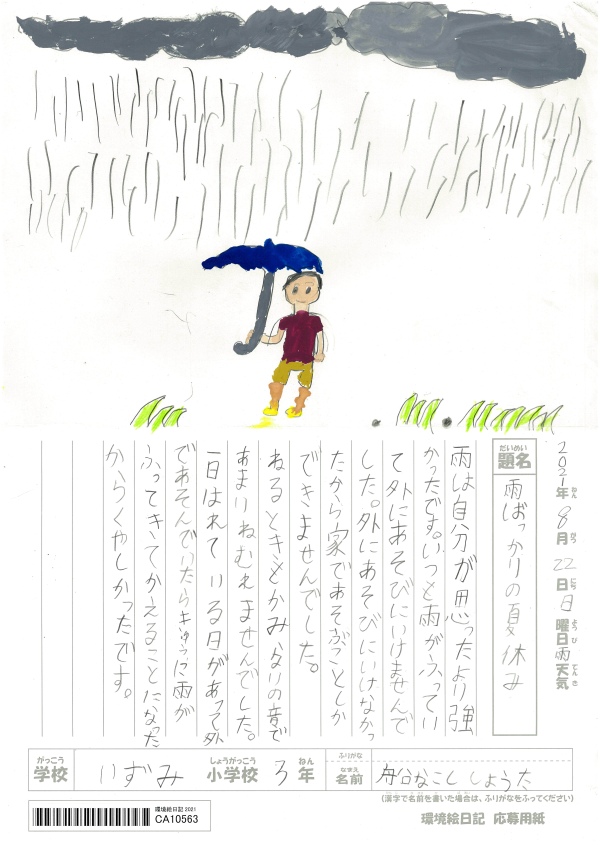 2021年ねん8月がつ22日にち日曜日ようび雨天気てんき
題名だいめい
雨ばっかりの夏休み
雨は自分が思ったより強
かったです。いっと雨がふってい
て外にあそびにいけませんで
した。外にあそびにいけなかっ
たから家であそぶことしか
できませんでした。
ねるときとかみなりの音で
あまりねむれませんでした。
一日はれている日があって外
であそんでいたらきゅうに雨が
ふってきてかえることになった
からくやしかったです。
がっこう しょうがっこう ねん ふりがな
学校 いずみ 小学校 3年
なまえ
名前 しょうた
(漢字で名前を書いた場合は、ふりがなをふってください)
環境絵日記 2021
CA10563
環境絵日記 応募用紙